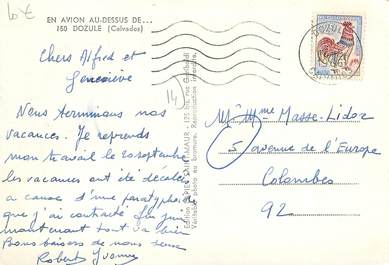 10 €
EN AVION AU-DESSUS DE...
150 DOZULE (Calvados)
Chers Alfred et
Geneviève
14
Nous terminons nos
vacances. Je reprends
mon travail le 20 septembre
les vacances ont été décalées
a cause d'une paratyphoïde
que j'ai contracté fin juin
maintenant tout va bien
Bons baisers de nous deux
Robert Yvonne
Véritable photo au bromure. Reproduction interdite.
DOZULE
CALVADOS
Mr Mme Masse-Lidor
5 avenue de l'Europe
Colombes
92